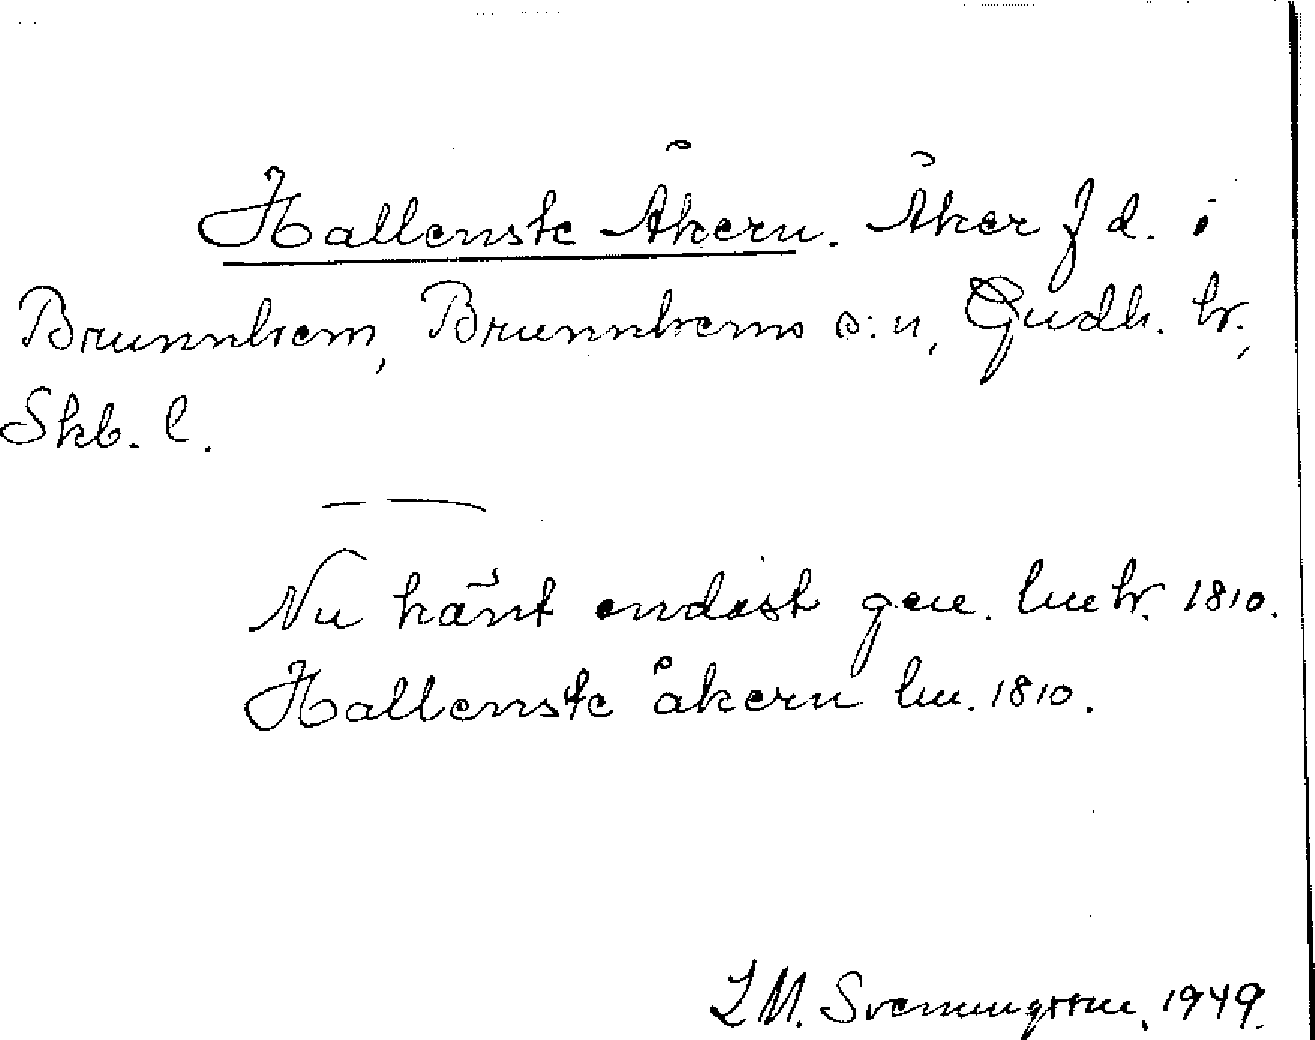 Hallenste Åkern. Åker f d. i
Brunnhem, Brunnhems s:n, Gudh. hr.,
Skb. l.
Nu känt endast gen. lm hr. 1810.
Hallenste åkern lm. 1810.
L M. Svenungsson, 1949.